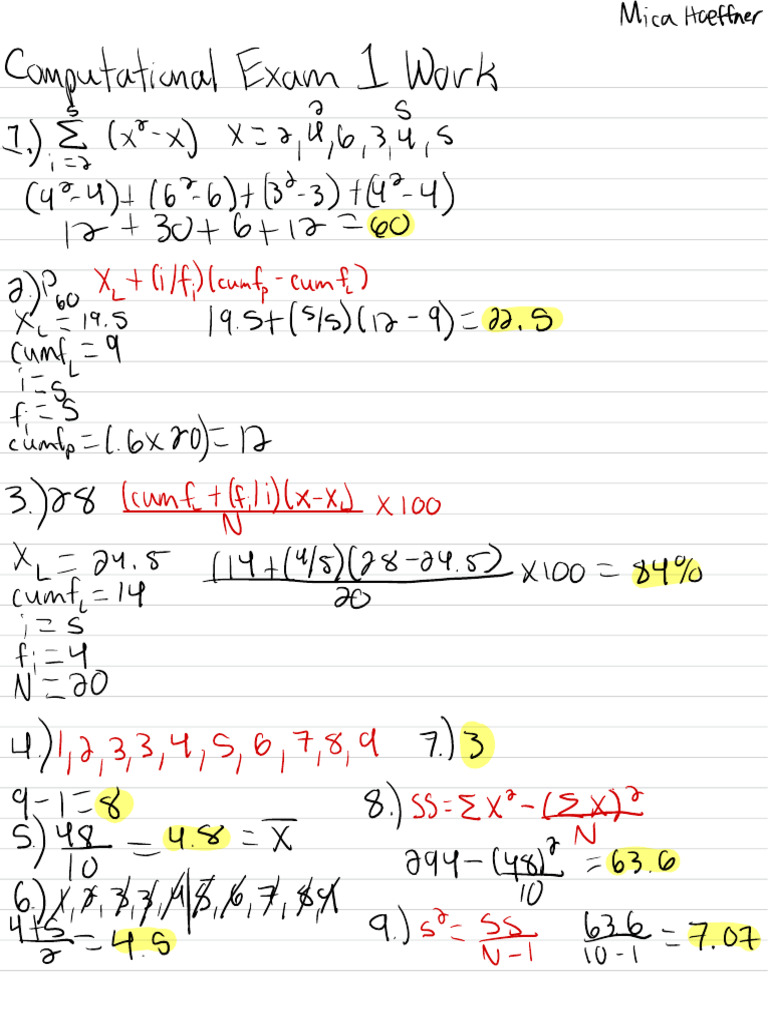 Mica Hoeffner
Computational Exam 1 Work
1.) 5 Σ i=2 (x²-x) X=2,4,6,3,4,5
2 5
(4²-4)+(6²-6)+(3²-3)+(4²-4)
12+30+6+12=60
2.) P60 X_L+(i/f_i)(cumf_p-cumf_L)
X_L=19.5 19.5+(5/5)(12-9)=22.5
cumf_L=9
i=5
f_i=5
cumf_p=(.6x20)=12
3.) 28 (cumf_L+(f_i/i)(x-x_L) / N x100
X_L=24.5 (14+(4/5)(28-24.5) / 20 x100=84%
cumf_L=14
i=5
f_i=4
N=20
4.) 1,2,3,3,4,5,6,7,8,9
9-1=8
5.) 48/10=4.8=X̅
6.) 1,2,3,3,4|5,6,7,8,9
4+5/2=4.5
7.) 3
8.) SS=ΣX²-(ΣX)²/N
294-(48)²/10=63.6
9.) s²=SS/N-1 63.6/10-1=7.07